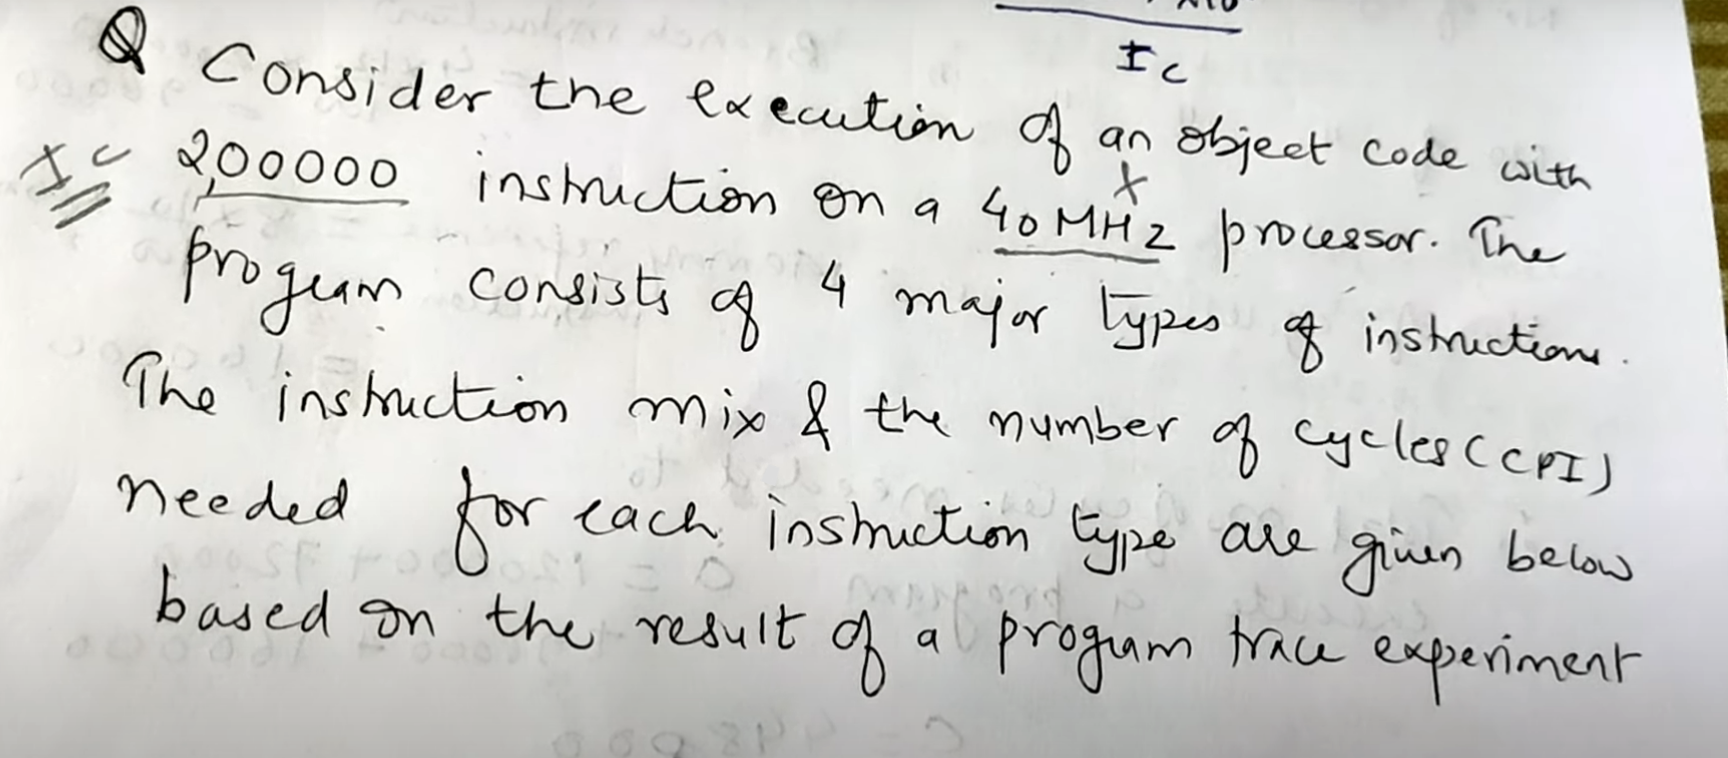 Ic
Q Consider the execution of an object code with
Ic 2,00000 instruction on a 40 MHz processor. The
program consists of 4 major types of instructions.
The instruction mix & the number of cycles (CPI)
needed for each instruction type are given below
based on the result of a program trace experiment